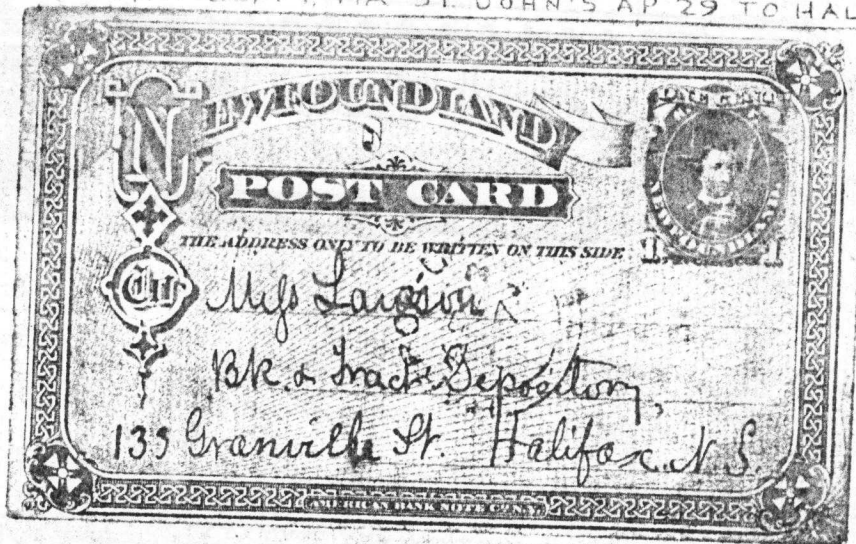 ST. JOHN'S AP 29 TO HAL
NEWFOUNDLAND
POST CARD
THE ADDRESS ONLY TO BE WRITTEN ON THIS SIDE
ONE CENT
NEWFOUNDLAND
1 1
To
Miss Lawson
Bk. & Tract Depository,
139 Granville St. Halifax. N.S.
AMERICAN BANK NOTE CO. N.Y.